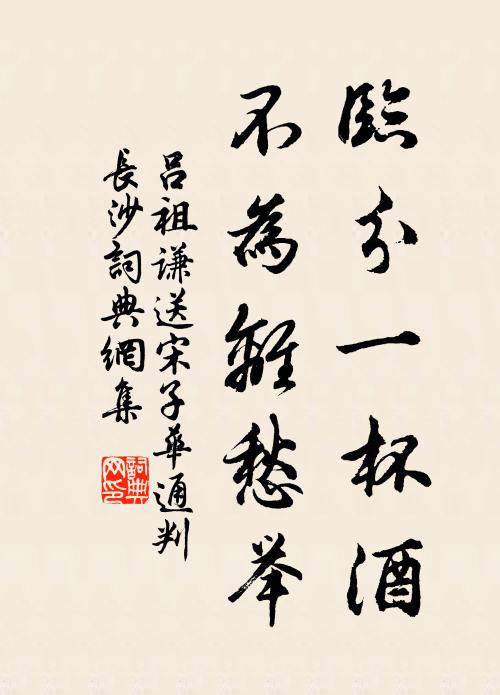 臨分一杯酒
不為離愁举
吕祖謙送宋子華通判
長沙詞典網集
詞典网印